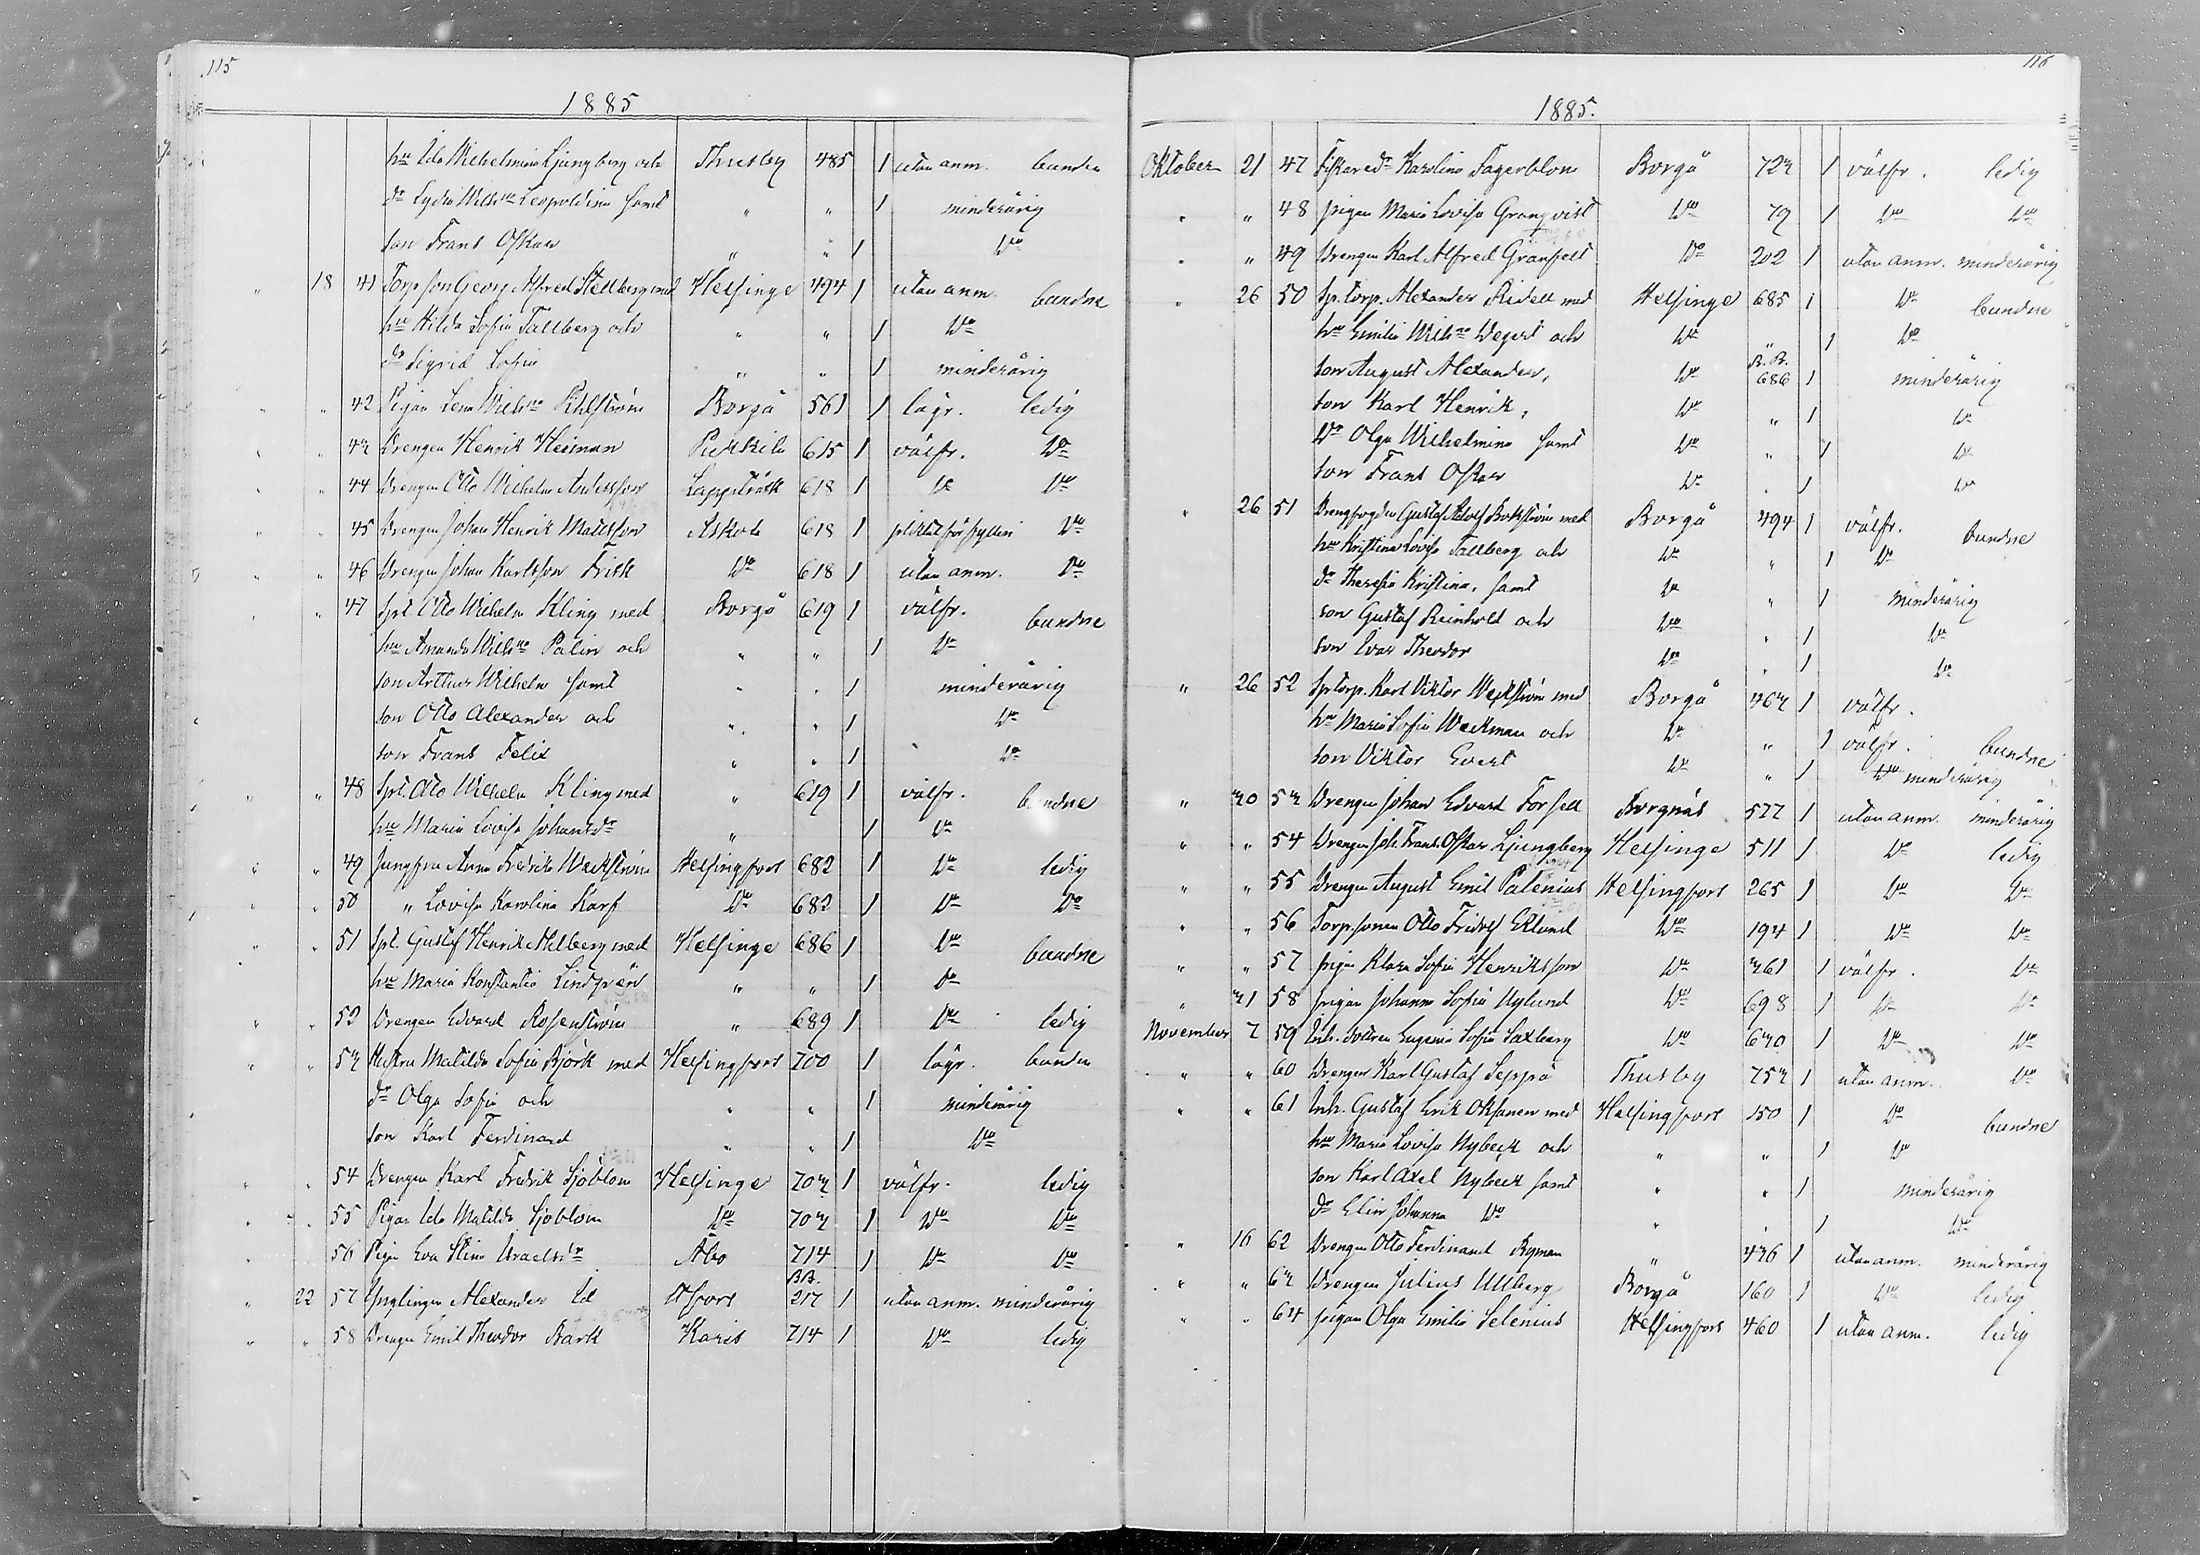 115
1885
hu Ida Wilhelmina Ljungberg och Thusby 485 1 utan anm. bunden
dr Lydia Wilhna Leopoldina samt " " 1 minderårig
son Frans Oskar " " 1 Do
" 18 41 Torp.son Georg Alfred Stellberg med Helsinge 494 1 utan anm. bundne
hu Hilda Sofia Tallberg och " " 1 Do
dr Sigrid Sofia " " 1 minderårig
" " 42 Pigan Lena Wilhna Pihlström Borgå 561 1 lägr. ledig
" " 43 Drengen Henrik Heiman Pukkila 615 1 välfr. Do
" " 44 Drengen Otto Wilhelm Andersson Lappträsk 618 1 Do Do
" " 45 Drengen Johan Henrik Mattsson Askola 618 1 pliktat för fylleri Do
" " 46 Drengen Johan Karlsson Frisk Do 618 1 utan anm. Do
" " 47 Spt. Otto Wilhelm Kling med Borgå 619 1 välfr. bundne
hu Amanda Wilhna Palin och " " 1 Do
son Arthur Wilhelm samt " " 1 minderårig
son Otto Alexander och " " 1 Do
son Frans Felix " " 1 Do
" " 48 Spt. Otto Wilhelm Kling med " 619 1 välfr. bundne
hu Maria Lovisa Johansdr " 1 Do
" " 49 Jungfru Anna Fredrika Weckström Helsingfors 682 1 Do ledig
" " 50 " Lovisa Karolina Karf Do 682 1 Do Do
" " 51 Spt. Gustaf Henrik Ahlberg med Helsinge 686 1 Do bundne
hu Maria Konstantia Lindqvist " " 1 Do
" " 52 Drengen Edvard Rosenström " 689 1 Do ledig
" " 53 Hustru Matilda Sofia Björk med Helsingfors 700 1 lägr. bunden
dr Olga Sofia och " " 1 minderårig
son Karl Ferdinand " " 1 Do
" " 54 Drengen Karl Fredrik Sjöblom Helsinge 703 1 välfr. ledig
" " 55 Pigan Ida Matilda Sjöblom Do 703 1 Do Do
" 56 Pigan Eva Stina Israelsdr Åbo 714 1 Do Do
" 22 57 Ynglingen Alexander Ed Hfors B.B. 217 1 utan anm. minderårig
" " 58 Drengen Emil Theodor Bark Karis 714 1 Do ledig
116
1885.
Oktober 21 47 Fiskaredr Karolina Fagerblom Borgå 723 1 välfr. ledig
" " 48 pigan Maria Lovisa Granqvist Do 79 1 Do Do
" " 49 Drengen Karl Alfred Granfelt Do 202 1 utan anm. minderårig
" 26 50 Sp.torp. Alexander Ridell med Helsinge 685 1 Do bundne
hu Emilia Wilhna Wegert och Do " 1 Do
son August Alexander, Do B.B. 686 1 minderårig
son Karl Henrik, Do " 1 Do
Dr Olga Wilhelmina samt Do " 1 Do
son Frans Oskar Do " 1 Do
" 26 51 Drengfogden Gustaf Adolf Bokström med Borgå 494 1 välfr. bundne
hu Kristina Lovisa Tallberg och Do " 1 Do
dr Theresia Kristina, samt Do " 1 minderårig
son Gustaf Reinhold och Do " 1 Do
son Ivar Theodor Do " 1 Do
" 26 52 Sp.torp. Karl Viktor Weckström med Borgå 363 1 välfr.
hu Maria Sofia Weckman och Do " 1 välfr. bundne
son Viktor Evert Do " 1 Do minderårig
" 30 53 Drengen Johan Edvard Forsell Borgnäs 577 1 utan anm. minderårig
" " 54 Drengen Joh. Frans Oskar Ljungberg Helsinge 511 1 Do ledig
" " 55 Drengen August Emil Palenius Helsingfors 265 1 Do Do
" " 56 Torp.sonen Otto Fridolf Eklund Do 194 1 Do Do
" " 57 pigan Klara Sofia Henriksson Do 361 1 välfr. Do
" 31 58 pigan Johanna Sofia Nylund Do 698 1 Do Do
November 7 59 Inh. dottren Eugenia Sofia Saxberg Do 630 1 Do Do
" " 60 Drengen Karl Gustaf Seppä Thusby 753 1 utan anm. Do
" " 61 Inh. Gustaf Erik Oksanen med Helsingfors 150 1 Do bundne
hu Maria Lovisa Nybeck och " " 1 Do
son Karl Axel Nybeck samt " " 1 minderårig
dr Elin Johanna Do " " 1 Do
" 16 62 Drengen Otto Ferdinand Byman " 436 1 utan anm. minderårig
" " 63 Drengen Julius Ullberg Borgå 160 1 Do ledig
" " 64 pigan Olga Emilia Selenius Helsingfors 460 1 utan anm. ledig